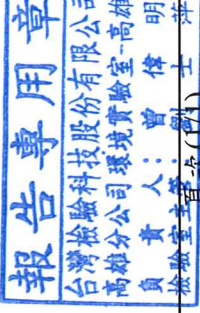 報告專用章
台灣檢驗科技股份有限公司
高雄分公司環境實驗室-高雄
負責人:曾偉明
檢驗室主管:
頁次(1/1)